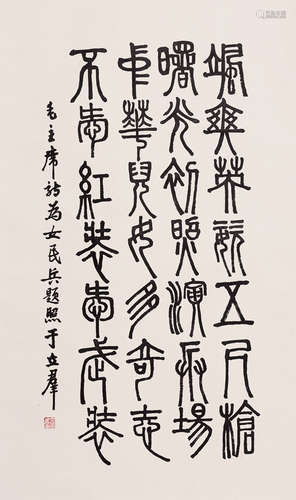 颯爽英姿五尺槍
曙光初照演兵場
中華兒女多奇志
不愛紅裝愛武裝
毛主席詩為女民兵題照于立群